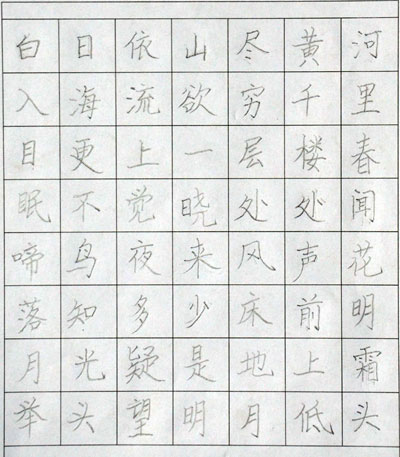 白日依山尽黄河
入海流欲穷千里
目更上一层楼春
眠不觉晓处处闻
啼鸟夜来风声花
落知多少床前明
月光疑是地上霜
举头望明月低头